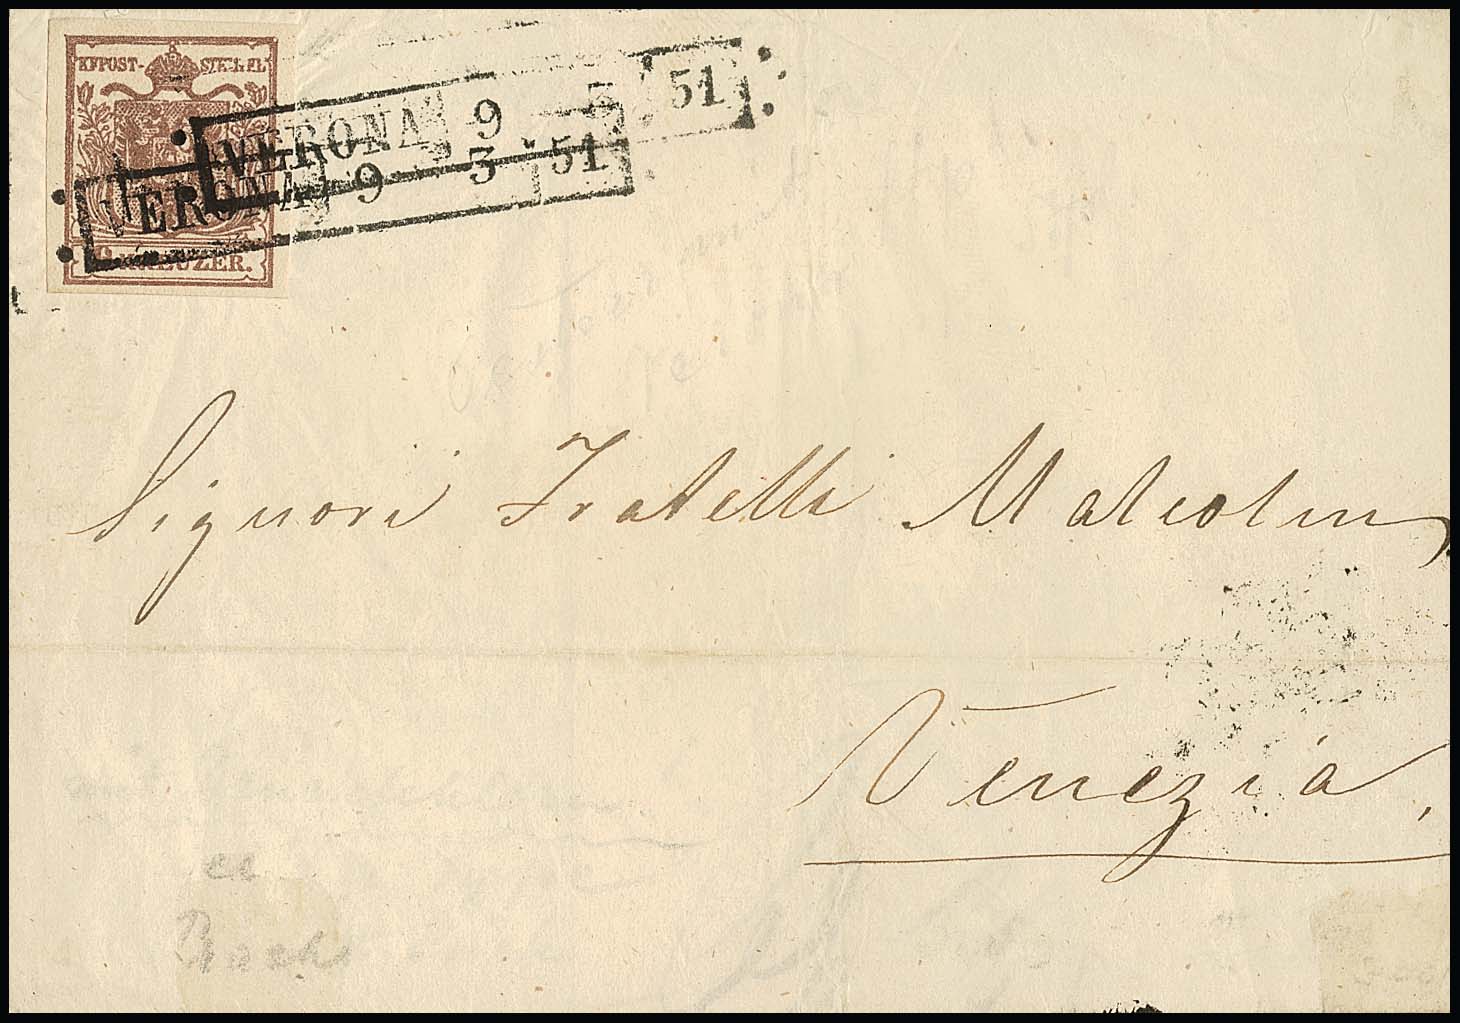 KK POST-STEMPEL
VERONA 9 3 51
VERONA 9 3 51
KREUZER.
Signori Fratelli Malcolm
Venezia.